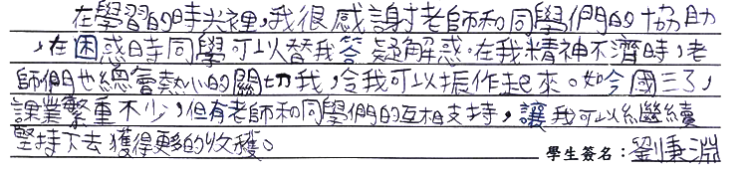 在學習的時光裡,我很感謝老師和同學們的協助
,在困惑時同學可以替我答疑解惑。在我精神不濟時,老
師們也總會熱心的關切我,令我可以振作起來。如今國三了,
課業繁重不少,但有老師和同學們的互相支持,讓我可以繼續
堅持下去獲得更多的收穫。
學生簽名:劉秉淵